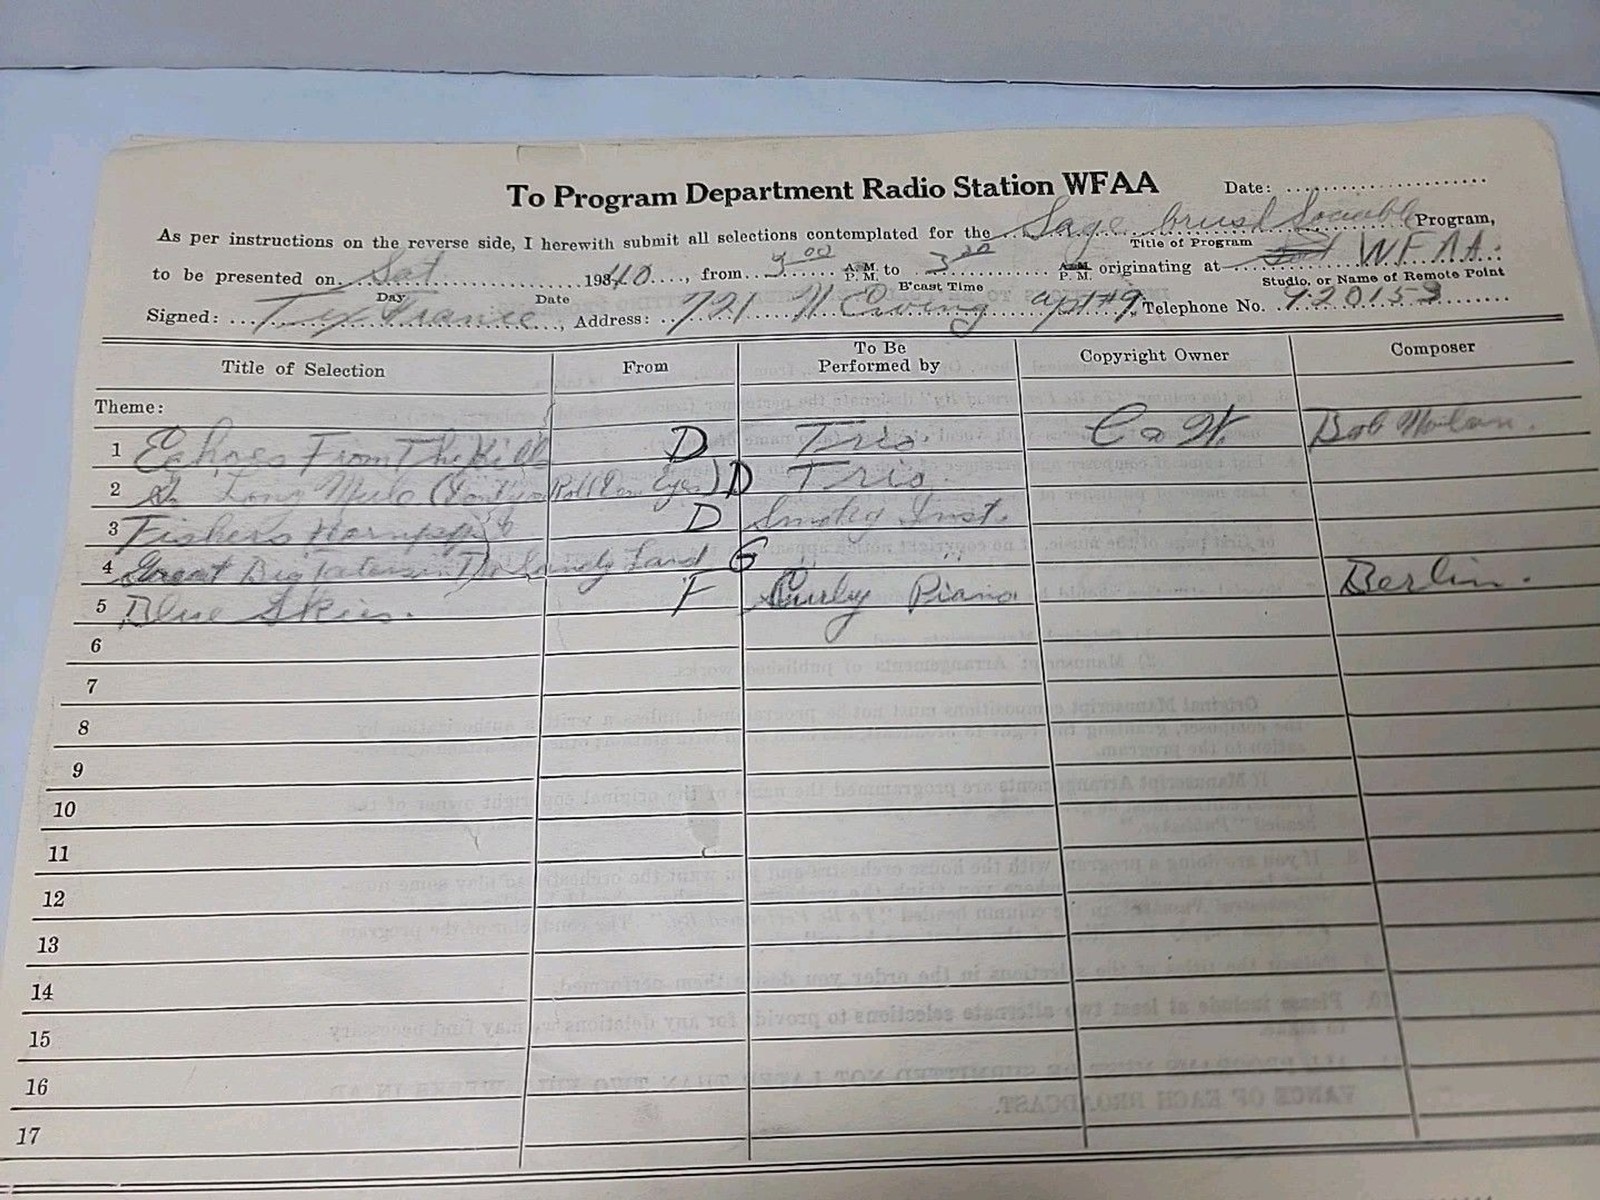 To Program Department Radio Station WFAA Date:
As per instructions on the reverse side, I herewith submit all selections contemplated for the Sage brush Sociable Program,
Title of Program
to be presented on Sat 19340, from 3 00 A.M. P.M. to 3 30 A.M. P.M. originating at WFAA.
Day Date B'cast Time Studio, or Name of Remote Point
Signed: Tex France, Address: 721 N Ewing apt #9, Telephone No. 9-20153
Title of Selection From To Be Performed by Copyright Owner Composer
Theme:
1 Echoes From The Hills D Trio Bob Nolan.
2 Long Mule D Trio
3 Fishers Hornpipe D Smokey Inst.
4 Great Big Taters in The Sandy Land G " "
5 Blue Skies. F Curly Piano Berlin.
6
7
8
9
10
11
12
13
14
15
16
17